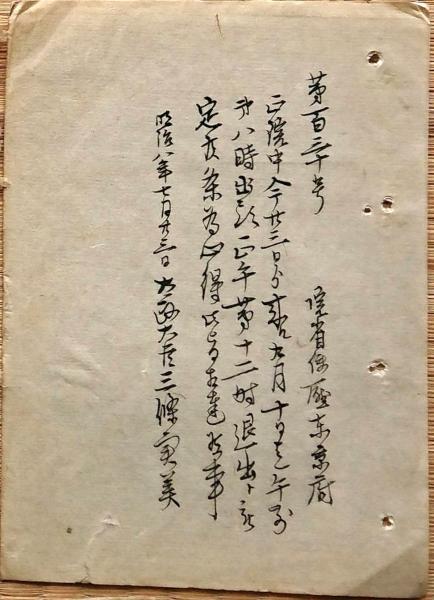 第百三十号
院省使廰東京府
正院中今廿三日ゟ来ル九月十日迠午前
第八時出頭正午第十二時退出ト被
定候条為心得此旨相達候事
明治八年七月廿三日 太政大臣三條實美